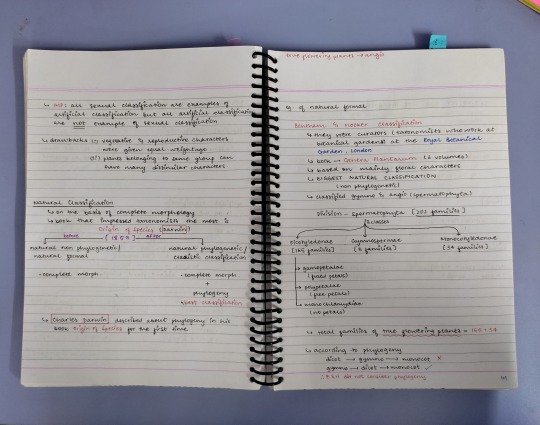 ↳ all sexual classification are examples of
artificial classification but all artificial classification
are not example of sexual classification
↳ drawbacks (i) vegetative & reproductive characters
were given equal weightage
(ii) plants belonging to same group can
have many dissimilar characters.
Natural Classification
↳ on the basis of complete morphology
↳ book that impressed taxonomists the most is
Origin of Species (Darwin)
before [1859] after
natural non phylogenetic/
natural formal
natural phylogenetic/
cladistic classification
• complete morph.
• complete morph.
+
phylogeny
• best classification
↳ Charles Darwin described about phylogeny in his
book origin of species for the first time
true flowering plants → angio
eg. of natural formal
Bentham & Hooker Classification
↳ they were curators (taxonomists who work at
botanical gardens) at the Royal Botanical
Garden, London
↳ book → Genera Plantarum (3 volumes)
↳ based on mainly floral characters
↳ BIGGEST NATURAL CLASSIFICATION
(non phylogenetic)
↳ classified gymno & angio (spermatophyta)
Division - spermatophyta [202 families]
3 classes
Dicotyledonae
[165 families]
Gymnospermae
[3 families]
Monocotyledonae
[34 families]
→ gamopetalae
(fused petals)
→ polypetalae
(free petals)
→ monochlamydae
(no petals)
↳ total families of true flowering plants = 165 + 34
↳ according to phylogeny
dicot → gymno → monocot ✗
gymno → dicot → monocot ✓
∴ B & H did not consider phylogeny